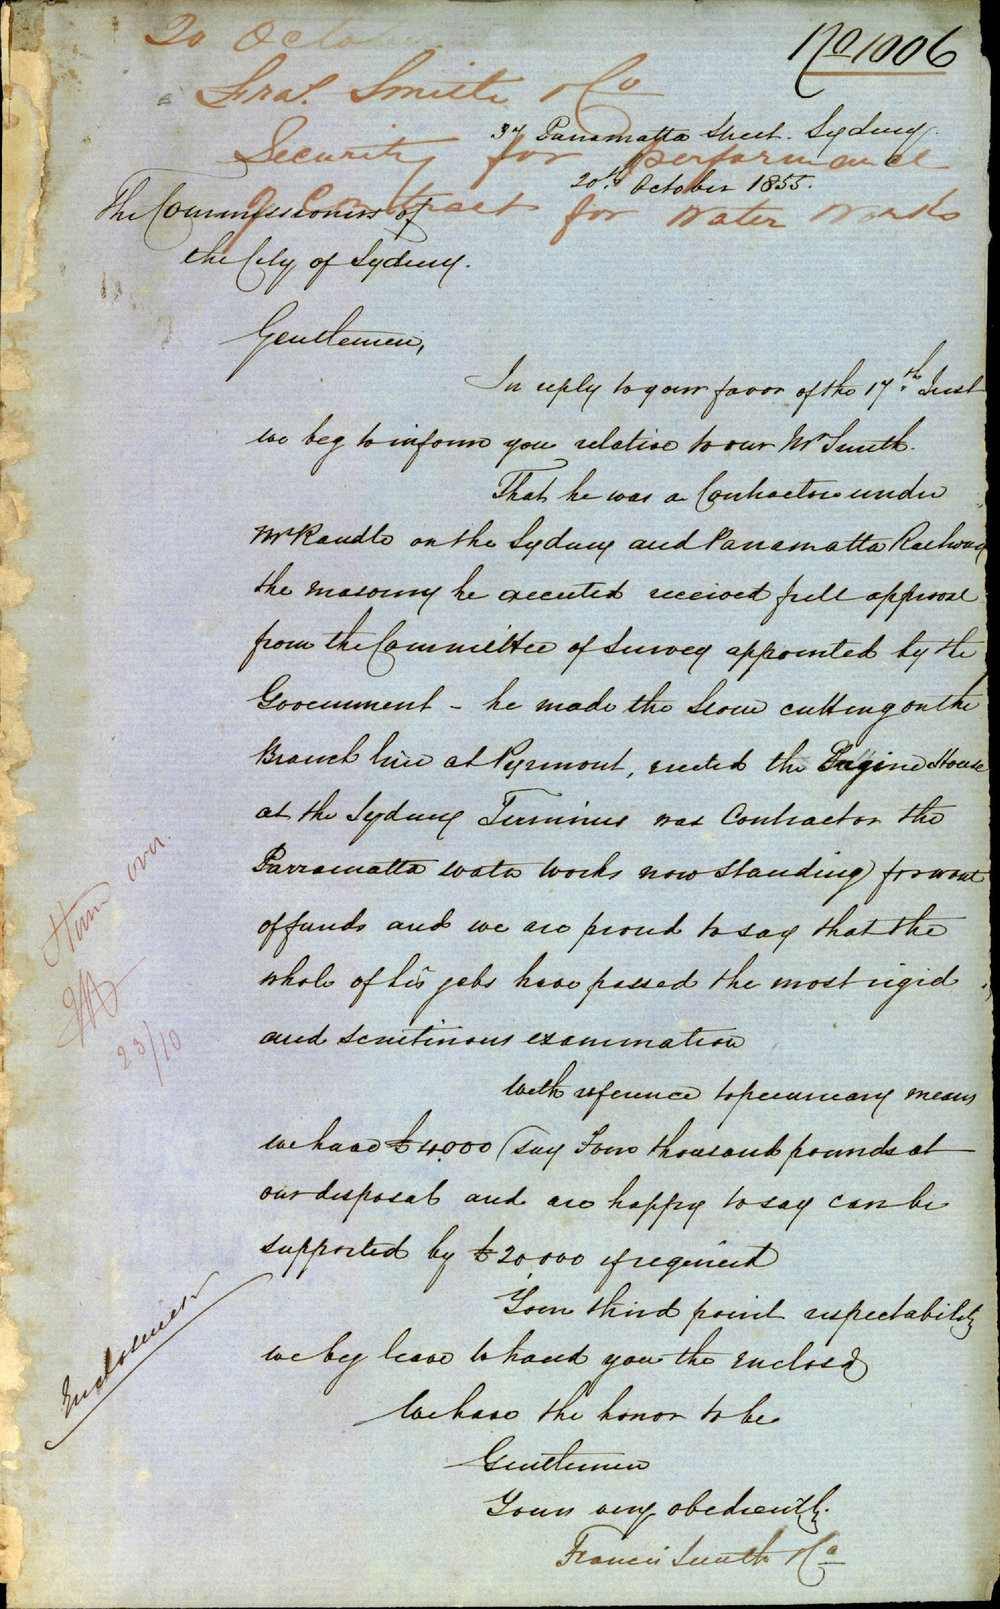 No 1006
20 October
Fras. Smith & Co
Security for performance
of Contract for Water Works
37 Parramatta Street. Sydney
20th October 1855.
The Commissioners of
the City of Sydney.
Gentlemen,
In reply to your favor of the 17th Inst
we beg to inform you relative to our Mr Smith.
That he was a Contractor under
Mr Randle on the Sydney and Parramatta Railway
the masonry he executed received full approval
from the Committee of Survey appointed by the
Government - he made the Stone cutting on the
Branch line at Pyrmont, erected the Engine House
at the Sydney Terminus was Contractor the
Parramatta water works now standing) for want
of funds and we are proud to say that the
whole of his jobs have passed the most rigid
and scrutinous examination
With reference to pecuniary means
we have £4000 (say Four thousand pounds at
our disposal and are happy to say can be
supported by £20,000 if requisit
Your third point respectability
we beg leave to hand you the enclosed
We have the honor to be
Gentlemen
Yours very obediently.
Francis Smith & Co
Turn over
23/10
Enclosures